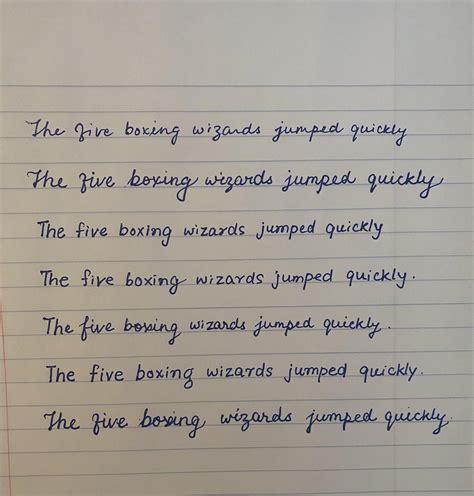 The five boxing wizards jumped quickly
The five boxing wizards jumped quickly
The five boxing wizards jumped quickly
The five boxing wizards jumped quickly.
The five boxing wizards jumped quickly.
The five boxing wizards jumped quickly.
The five boxing wizards jumped quickly.